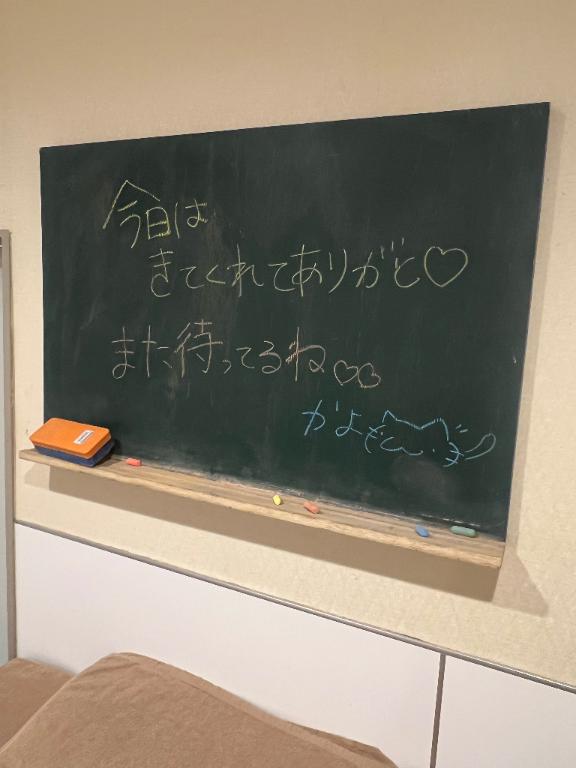 今日は
きてくれてありがと♡
また待ってるね♡♡
かよ